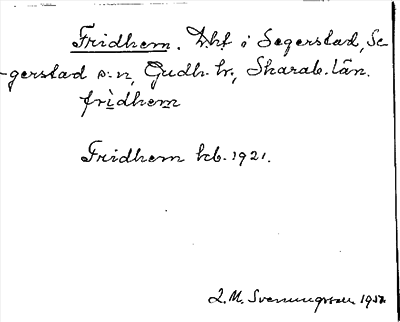 Fridhem. Lht i Segerstad, Se-
gerstad s:n, Gudh. hr., Skarab. län.
frìdhem
Fridhem kb. 1921.
L. M. Svenungsson 195